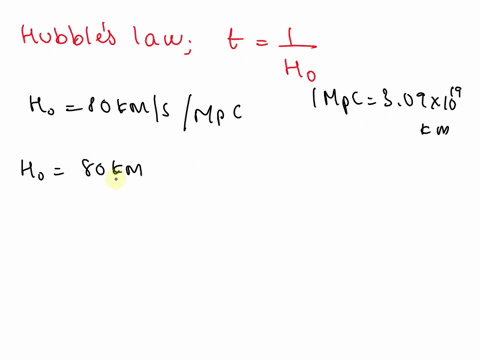 Hubble's law; t = 1/H₀
H₀ = 80 km/s /Mpc
1 Mpc = 3.09×10¹⁹ km
H₀ = 80 km